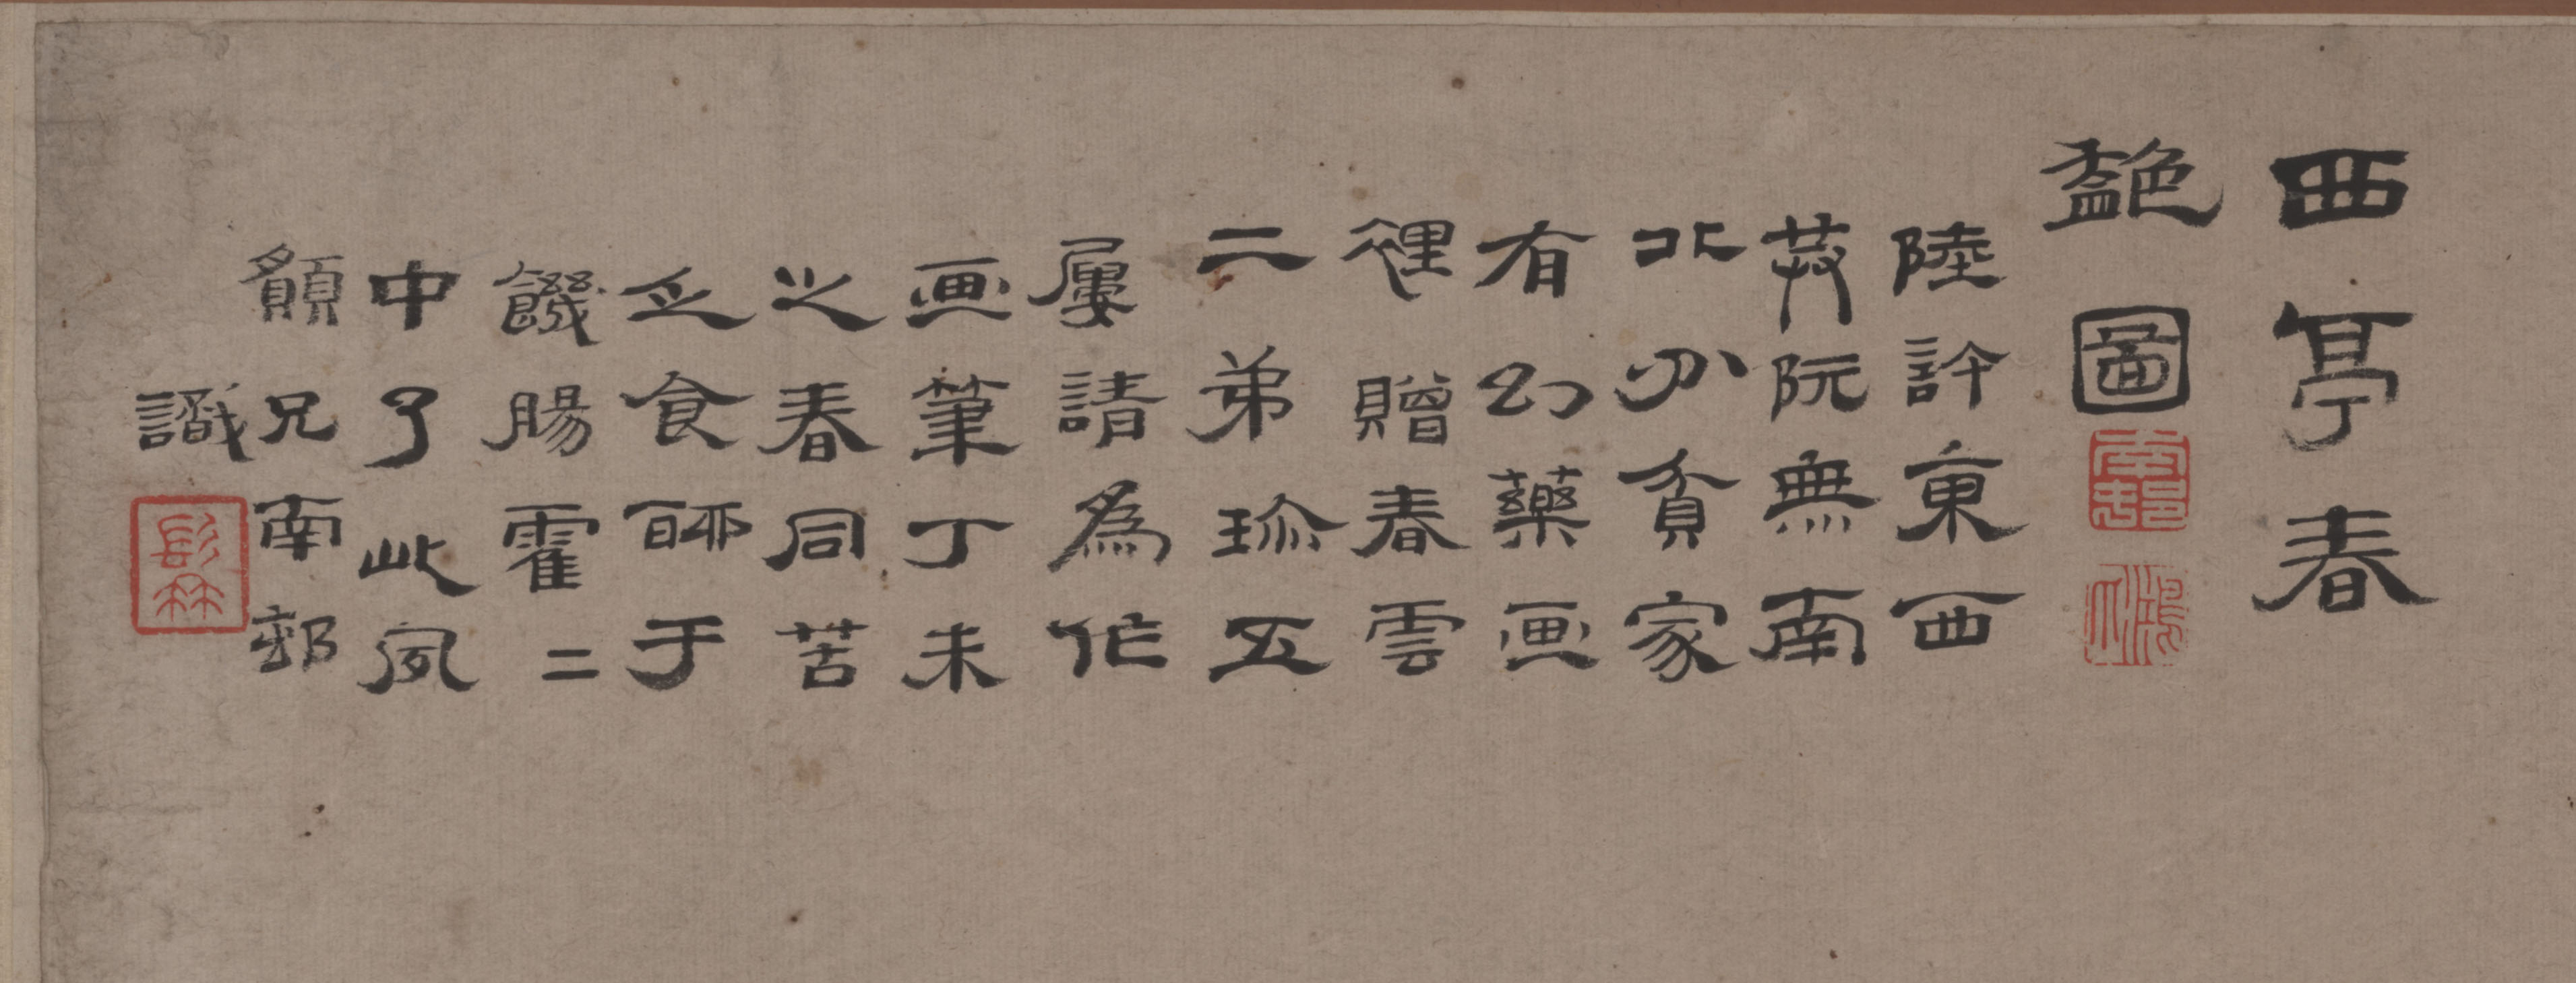 西亭春
艷圖
陸許東西
茂阮無南
北分貧家
有幻藥画
裡贈春雲
二弟珍五
屢請為作
画筆丁未
之春同苦
乏食聊于
饑腸霍二
中了此夙
願兄南邨
識
南邨